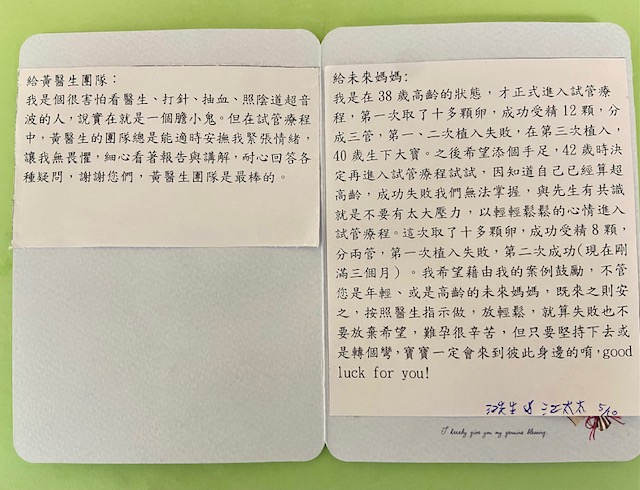 給黃醫生團隊：
我是個很害怕看醫生、打針、抽血、照陰道超音
波的人，說實在就是一個膽小鬼。但在試管療程
中，黃醫生的團隊總是能適時安撫我緊張情緒，
讓我無畏懼，細心看著報告與講解，耐心回答各
種疑問，謝謝您們，黃醫生團隊是最棒的。
給未來媽媽：
我是在 38 歲高齡的狀態，才正式進入試管療
程，第一次取了十多顆卵，成功受精 12 顆，分
成三管，第一、二次植入失敗，在第三次植入，
40 歲生下大寶。之後希望添個手足，42 歲時決
定再進入試管療程試試，因知道自己已經算超
高齡，成功失敗我們無法掌握，與先生有共識
就是不要有太大壓力，以輕輕鬆鬆的心情進入
試管療程。這次取了十多顆卵，成功受精 8 顆，
分兩管，第一次植入失敗，第二次成功(現在剛
滿三個月）。我希望藉由我的案例鼓勵，不管
您是年輕、或是高齡的未來媽媽，既來之則安
之，按照醫生指示做，放輕鬆，就算失敗也不
要放棄希望，難孕很辛苦，但只要堅持下去或
是轉個彎，寶寶一定會來到彼此身邊的唷，good
luck for you!
江先生 & 江太太 5/10
I heartly give you my genuine blessing.